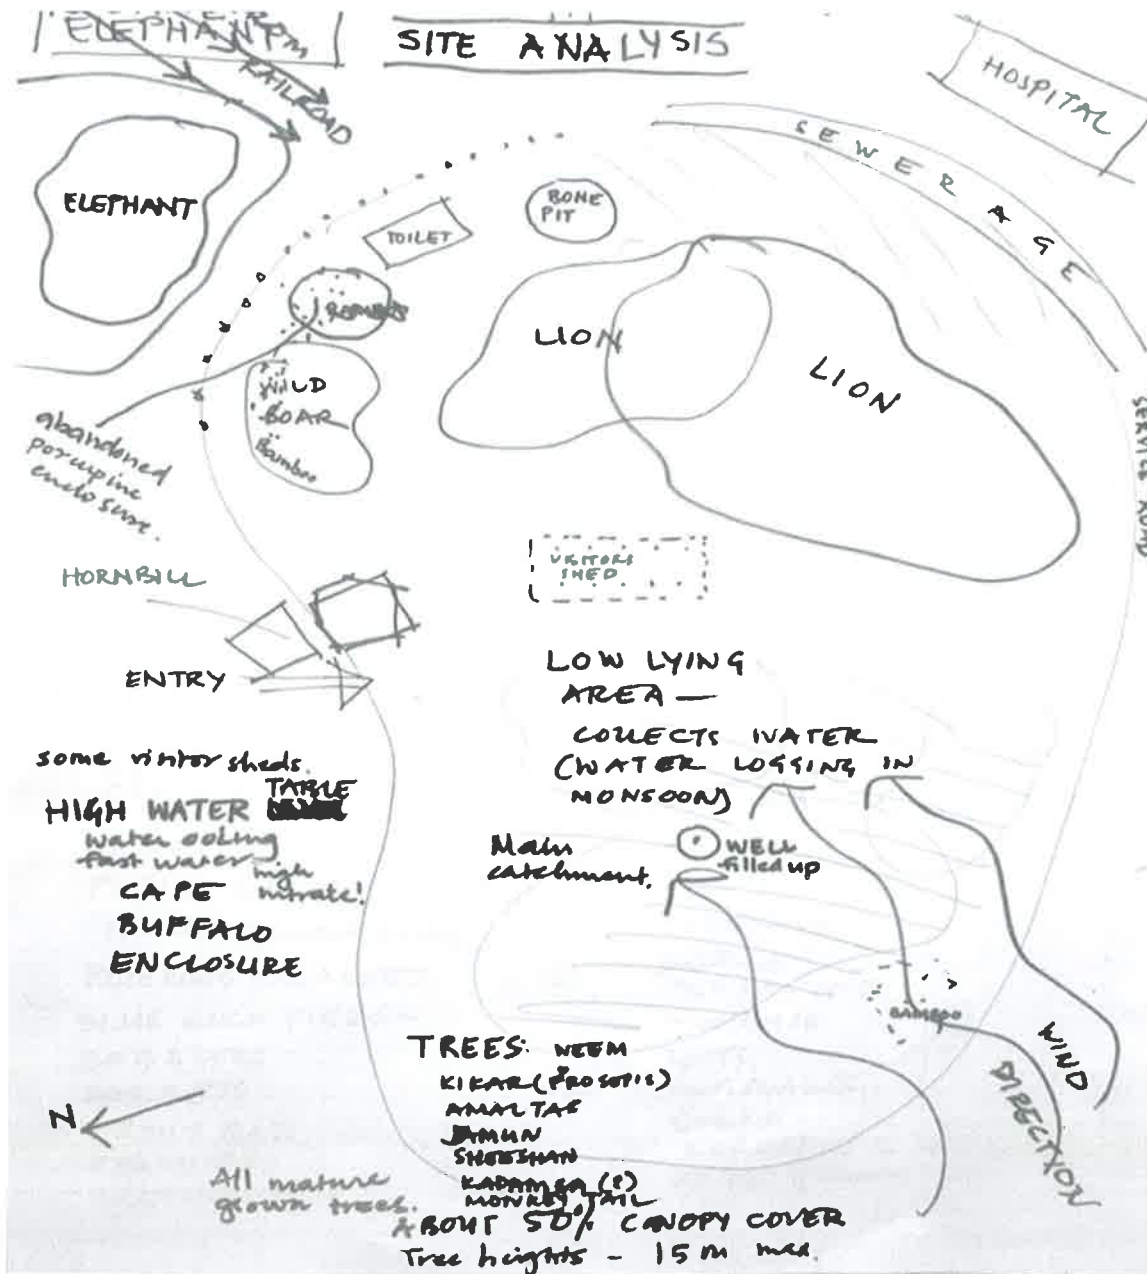 ELEPHANT
SITE ANALYSIS
HOSPITAL
RAILROAD
SEWERAGE
ELEPHANT
BONE
PIT
TOILET
LION
LION
WILD
BOAR
Bamboo
abandoned
porcupine
enclosure.
SERVICE ROAD
HORNBILL
VISITORS
SHED
ENTRY
LOW LYING
AREA —
COLLECTS WATER
(WATER LOGGING IN
MONSOON)
some visitor sheds.
HIGH WATER TABLE
water ooling
fast water high
nitrate!
CAPE
BUFFALO
ENCLOSURE
Main
catchment.
WELL
filled up
BAMBOO
WIND
DIRECTION
N
TREES: NEEM
KIKAR (PROSOPIS)
AMALTAS
JAMUN
SHEESHAN
KADAMBA (?)
MONKEY TAIL
All mature
grown trees.
ABOUT 50% CANOPY COVER
Tree heights - 15 m max.